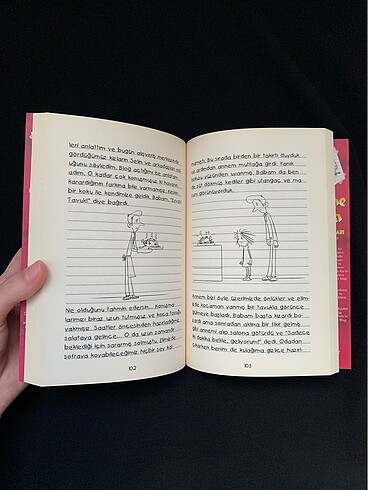 leri anlattım ve bugün alışveriş merkezinde
gördüğümüz kızların Selin ve arkadaşları old
uğunu söyledim. Blog açtığımı ise anlatam
adım. O kadar çok konuşmuşuz ki havanın
karardığının farkına bile varmamışız. Keskin
bir koku ile kendimize geldik. Babam, "Eyvah!
Tavuk!" diye bağırdı.
Ne olduğunu tahmin edersin... Konuşma
larımızı biraz uzun tutmuşuz ve koca tavuğu
yakmışız. Saatler öncesinden hazırladığımız
salataya gelince... O da uzun zamandır
beklediği için sararmış solmuştu. Elimizde
sofraya koyabileceğimiz hiçbir şey kal
102
mamıştı. Bu sırada birden bir takırtı duyduk
ardından annem mutfağa girdi. Yanık
kokusu yüzünden uyanmış. Babam da ben
de süt dökmüş kediler gibi utangaç ve ma
sum görünüyorduk.
Annem bizi öyle üzerimizde önlükler ve elim
izde kocaman yanmış bir tavukla görünce
gülmeye başladı. Babam başta kızardı bo
zardı ama sonradan aklına bir fikir gelmiş
gibi annemi alıp salona götürdü ve "Sadece
iki dakika bekle, geliyorum!" dedi. Odadan
çıkarken benim de kulağıma gelice hazırl
103